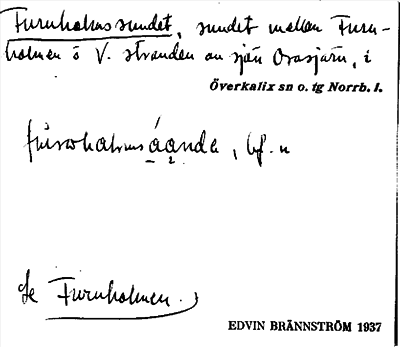 Furuholmssundet, sundet mellan Furu-
holmen o V. stranden av sjön Orasjärv, i
Överkalix sn o. tg Norrb. l.
bf. n
Se Furuholmen.
EDVIN BRÄNNSTRÖM 1937